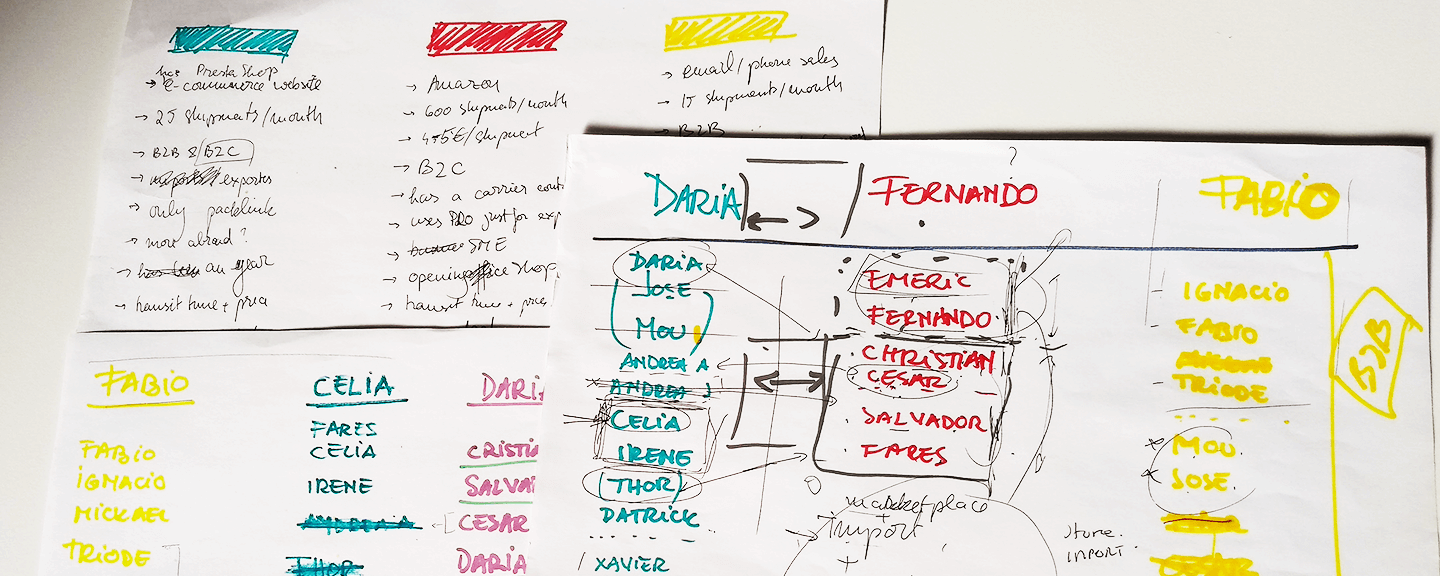 has PrestaShop
→ e-commerce website
→ 25 shipments/month
→ B2B & B2C
exportes
→ only packlink
→ mov abroad?
→ an year
→ transit time + price
→ Amazon
→ 600 shipments/month
→ 45€/shipment
→ B2C
→ has a carrier
→ uses PRO just for exp
→ SME
→ opening shop
→ transit time + price
→ email/phone sales
→ 15 shipments/month
→ B2B
FABIO
FABIO
IGNACIO
MICKAEL
TRIODE
CELIA
FARES
CELIA
IRENE
ANDREA
THOR
DARI
CRISTI
SALVA
CESAR
DARIA
DARIA
DARIA
JOSE
MOU
ANDREA A
ANDREA J
CELIA
IRENE
(THOR)
DATRICK
XAVIER
?
FERNANDO
EMERIC
FERNANDO
CHRISTIAN
CESAR
SALVADOR
FARES
marketplace
+
Import
+
store.
IMPORT
FABIO
IGNACIO
FABIO
TRIODE
MOU
JOSE
B2B